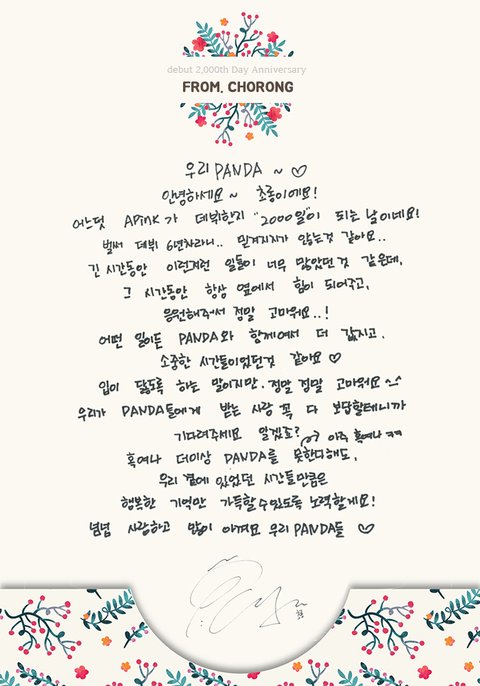 debut 2,000th Day Anniversary
FROM. CHORONG
우리 PANDA ~ ♡
안녕하세요~ 초롱이에요!
어느덧 APink가 데뷔한지 "2000일"이 되는 날이네요!
벌써 데뷔 6년차라니.. 믿겨지지가 않는것 같아요..
긴 시간동안 이런저런 일들이 너무 많았던것 같은데,
그 시간동안 항상 옆에서 힘이 되어주고,
응원해주셔서 정말 고마워요..!
어떤 일이든 PANDA와 함께여서 더 값지고,
소중한 시간들이었던것 같아요 ♡
입이 닳도록 하는 말이지만, 정말 정말 고마워요 ^^
우리가 PANDA들에게 받는 사랑 꼭 다 보답할테니까
기다려주세요 알겠죠?
아주 혹여나 ㅋㅋ
혹여나 더이상 PANDA를 못한다해도,
우리 곁에 있었던 시간들만큼은
행복한 기억만 가득할수있도록 노력할게요!
넘넘 사랑하고 많이 아껴요 우리 PANDA들 ♡